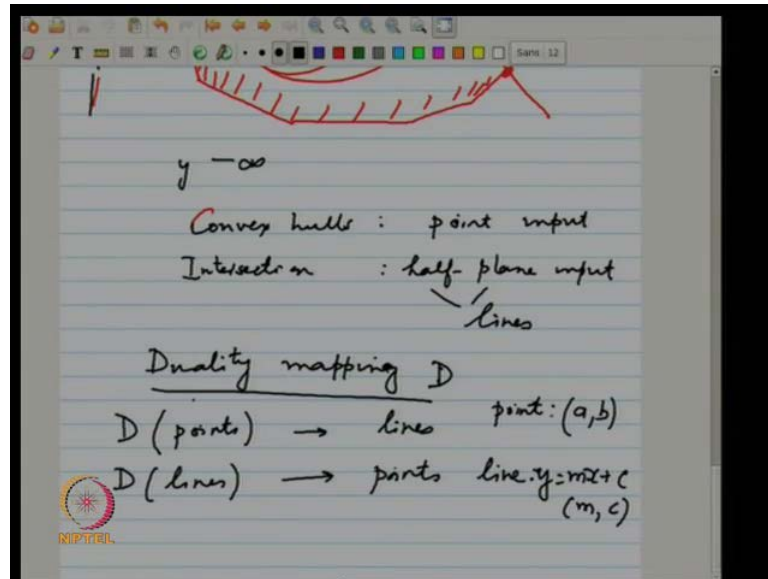 T Sans 12
y -∞
Convex hulls : point input
Intersection : half-plane input
lines
Duality mapping D
D (points) → lines point: (a,b)
D (lines) → points line. y=mx+c
(m, c)
NPTEL